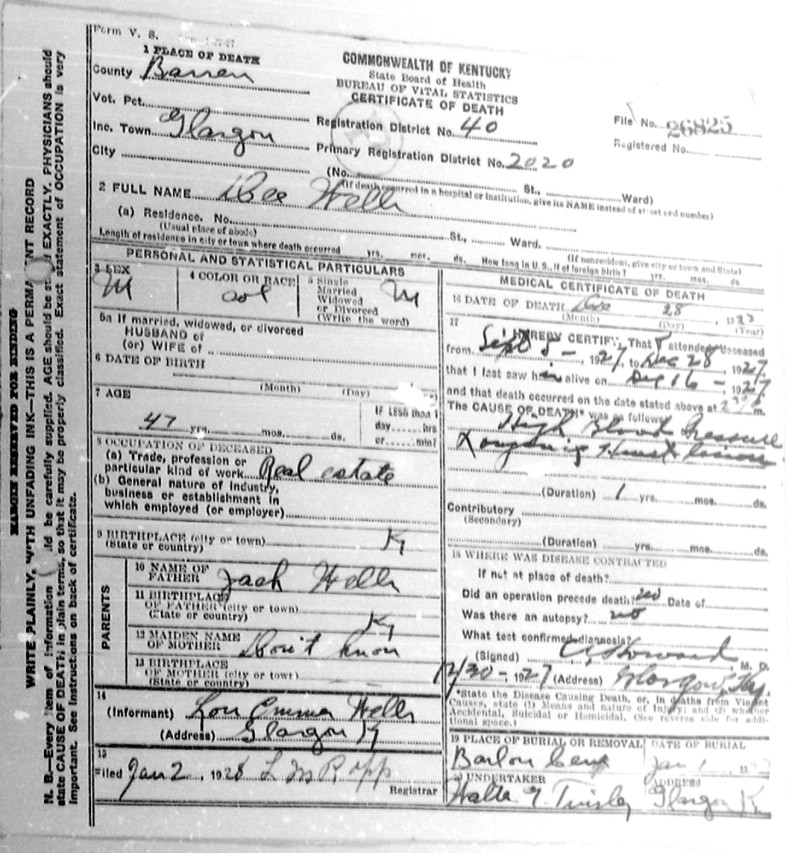 Form V. S.
1 PLACE OF DEATH
County Barren
Vot. Pct.
Inc. Town Glasgow
City
COMMONWEALTH OF KENTUCKY
State Board of Health
BUREAU OF VITAL STATISTICS
CERTIFICATE OF DEATH
Registration District No. 40
Primary Registration District No. 2020
File No. 26825
Registered No.
(No. St., Ward)
(If death occurred in a hospital or institution, give its NAME instead of street and number)
2 FULL NAME Dee Wells
(a) Residence. No. St., Ward.
(Usual place of abode) (If nonresident, give city or town and State)
Length of residence in city or town where death occurred yrs. mos. ds. How long in U.S., if of foreign birth? yrs. mos. ds.
PERSONAL AND STATISTICAL PARTICULARS
3 SEX M
4 COLOR OR RACE col
5 Single Married Widowed or Divorced (Write the word) M
5a If married, widowed, or divorced
HUSBAND of
(or) WIFE of
6 DATE OF BIRTH
(Month) (Day)
7 AGE
47 yrs. mos. ds.
IF LESS than 1
day hrs
or min?
8 OCCUPATION OF DECEASED
(a) Trade, profession or
particular kind of work Real estate
(b) General nature of industry,
business or establishment in
which employed (or employer)
9 BIRTHPLACE (city or town)
(State or country) Ky
PARENTS
10 NAME OF
FATHER Jack Wells
11 BIRTHPLACE
OF FATHER (city or town)
(State or country) Ky
12 MAIDEN NAME
OF MOTHER Don't know
13 BIRTHPLACE
OF MOTHER (city or town)
(State or country)
14
(Informant) Lou Emma Wells
(Address) Glasgow Ky
15
Filed Jan 2, 1928
Registrar
MEDICAL CERTIFICATE OF DEATH
16 DATE OF DEATH Dec 28, 192
(Month) (Day) (Year)
17
I HEREBY CERTIFY, That I attended deceased
from Sept 8 - 1927, to Dec 28, 1927,
that I last saw him alive on Dec 16 - 1927
and that death occurred on the date stated above at m.
The CAUSE OF DEATH* was as follows:
High Blood Pressure
(Duration) 1 yrs. mos. ds.
Contributory
(Secondary)
(Duration) yrs. mos. ds.
18 WHERE WAS DISEASE CONTRACTED
If not at place of death?
Did an operation precede death? no Date of
Was there an autopsy? no
What test confirmed diagnosis?
(Signed) Howard M. D.
12/30 - 1927 (Address) Glasgow, Ky.
*State the Disease Causing Death, or, in deaths from Violent
Causes, state (1) Means and nature of Injury; and (2) whether
Accidental, Suicidal or Homicidal. (See reverse side for addi-
tional space.)
19 PLACE OF BURIAL OR REMOVAL DATE OF BURIAL
Barlow Cem Jan 1
20 UNDERTAKER ADDRESS
Glasgow Ky
MARGIN RESERVED FOR BINDING
WRITE PLAINLY, WITH UNFADING INK—THIS IS A PERMANENT RECORD
N. B.—Every item of information should be carefully supplied. AGE should be stated EXACTLY. PHYSICIANS should
state CAUSE OF DEATH in plain terms, so that it may be properly classified. Exact statement of OCCUPATION is very
important. See instructions on back of certificate.